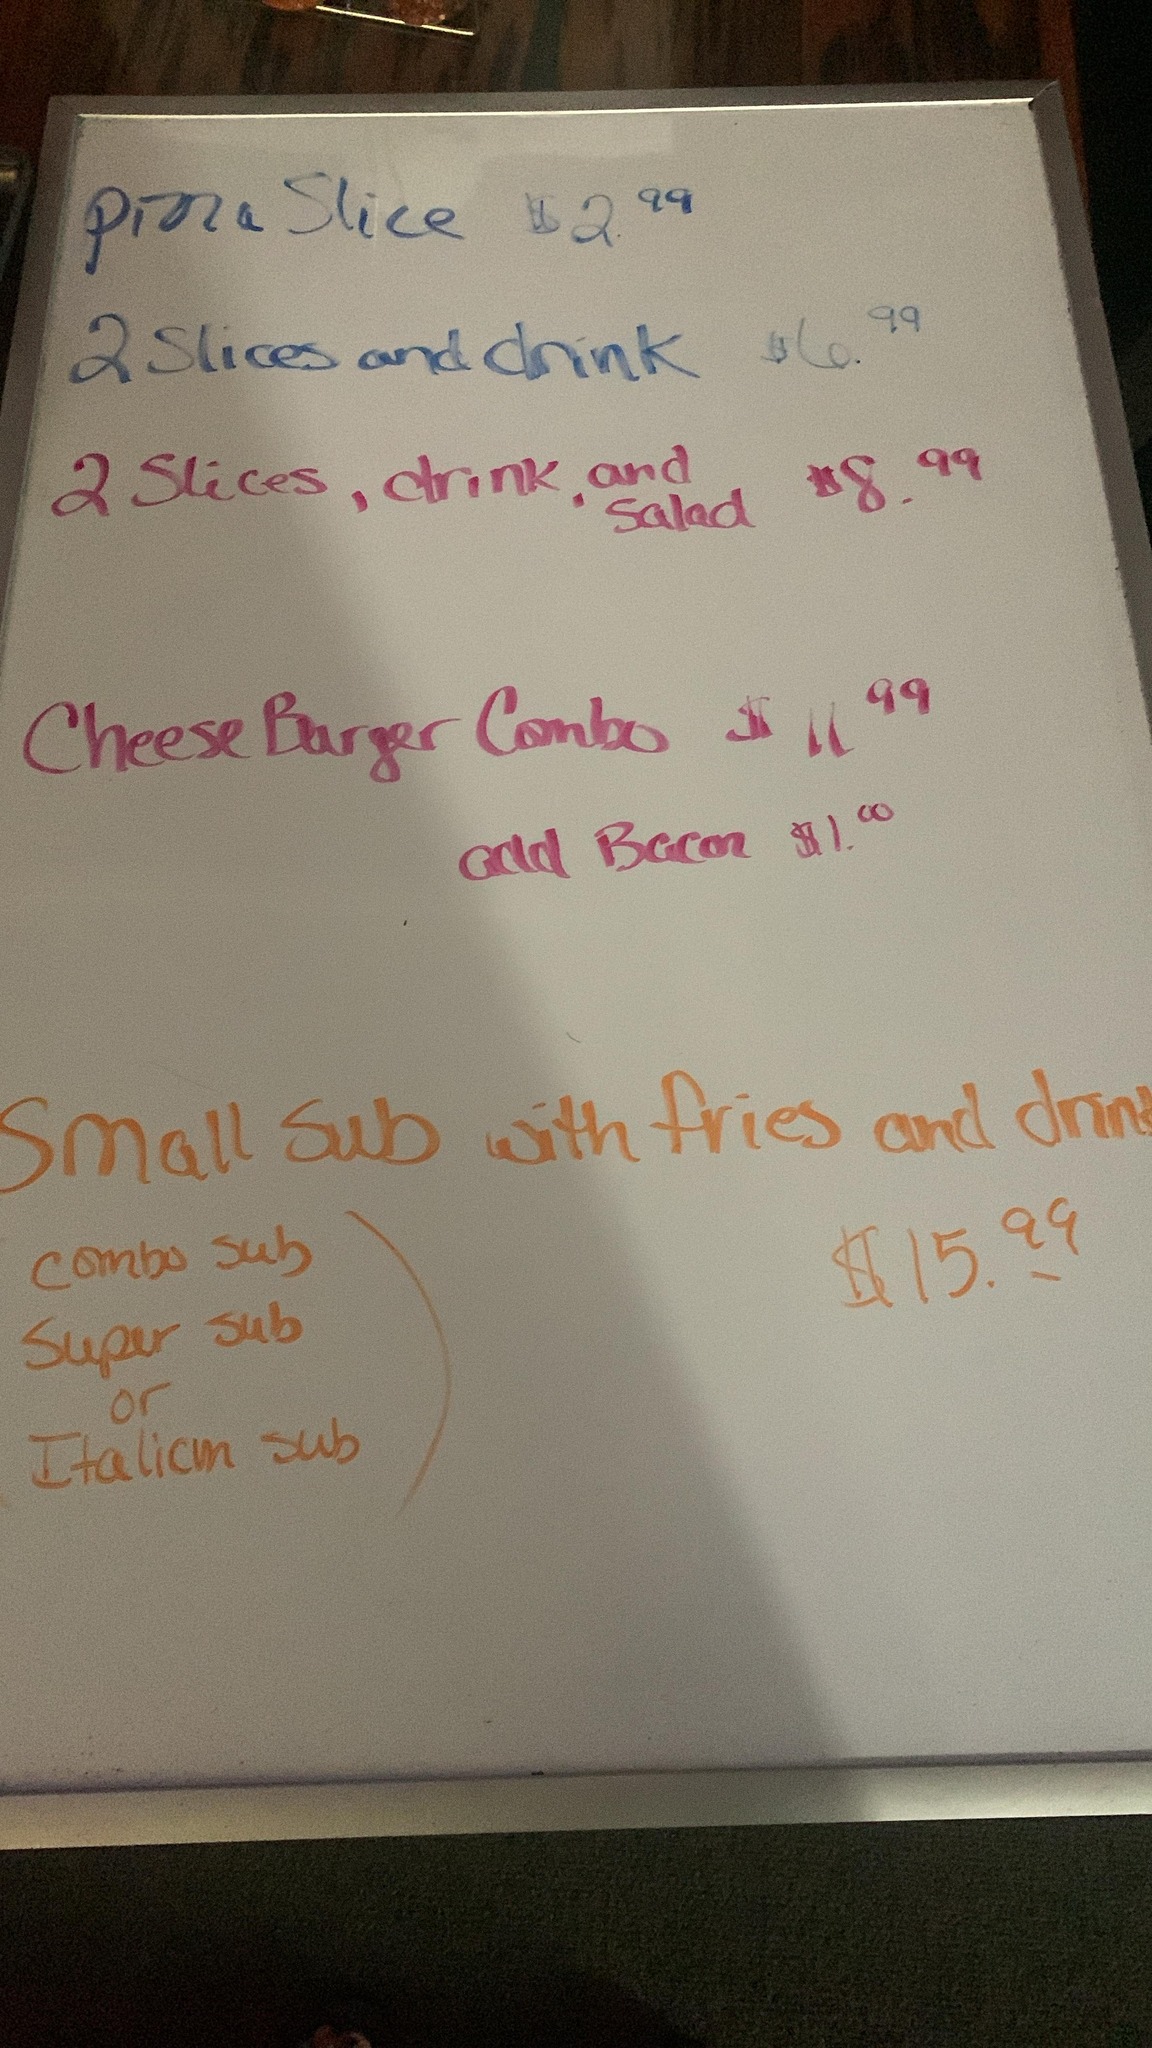 pizza Slice $2.99
2 Slices and drink $6.99
2 Slices, drink, and salad $8.99
Cheese Burger Combo $11.99
add Bacon $1.00
Small Sub with fries and drink
$15.99
combo sub
Super sub
or
Italian sub